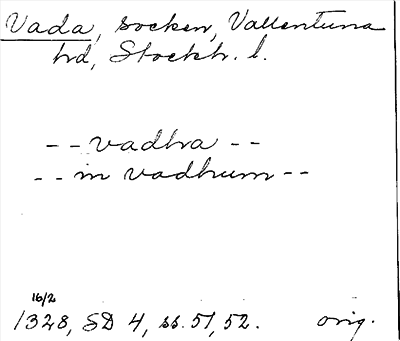 Vada, socken, Vallentuna
hd, Stockh. l.
-- vadhra --
-- in vadhum --
16/2
1328, SD 4, ss. 51, 52. orig.